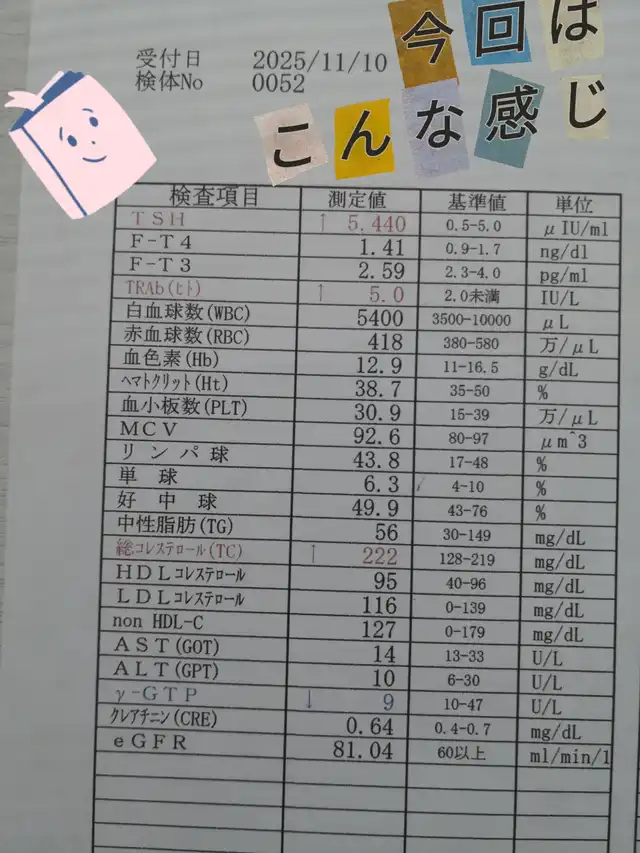 今回は
こんな感じ
受付日 2025/11/10
検体No 0052
検査項目 測定値 基準値 単位
TSH ↑ 5.440 0.5-5.0 μIU/ml
F-T4 1.41 0.9-1.7 ng/dl
F-T3 2.59 2.3-4.0 pg/ml
TRAb(ﾋﾄ) ↑ 5.0 2.0未満 IU/L
白血球数(WBC) 5400 3500-10000 μL
赤血球数(RBC) 418 380-580 万/μL
血色素(Hb) 12.9 11-16.5 g/dL
ﾍﾏﾄｸﾘｯﾄ(Ht) 38.7 35-50 %
血小板数(PLT) 30.9 15-39 万/μL
MCV 92.6 80-97 μm^3
リンパ球 43.8 17-48 %
単球 6.3 4-10 %
好中球 49.9 43-76 %
中性脂肪(TG) 56 30-149 mg/dL
総ｺﾚｽﾃﾛｰﾙ(TC) ↑ 222 128-219 mg/dL
HDLｺﾚｽﾃﾛｰﾙ 95 40-96 mg/dL
LDLｺﾚｽﾃﾛｰﾙ 116 0-139 mg/dL
non HDL-C 127 0-179 mg/dL
AST(GOT) 14 13-33 U/L
ALT(GPT) 10 6-30 U/L
γ-GTP ↓ 9 10-47 U/L
ｸﾚｱﾁﾆﾝ(CRE) 0.64 0.4-0.7 mg/dL
eGFR 81.04 60以上 ml/min/1